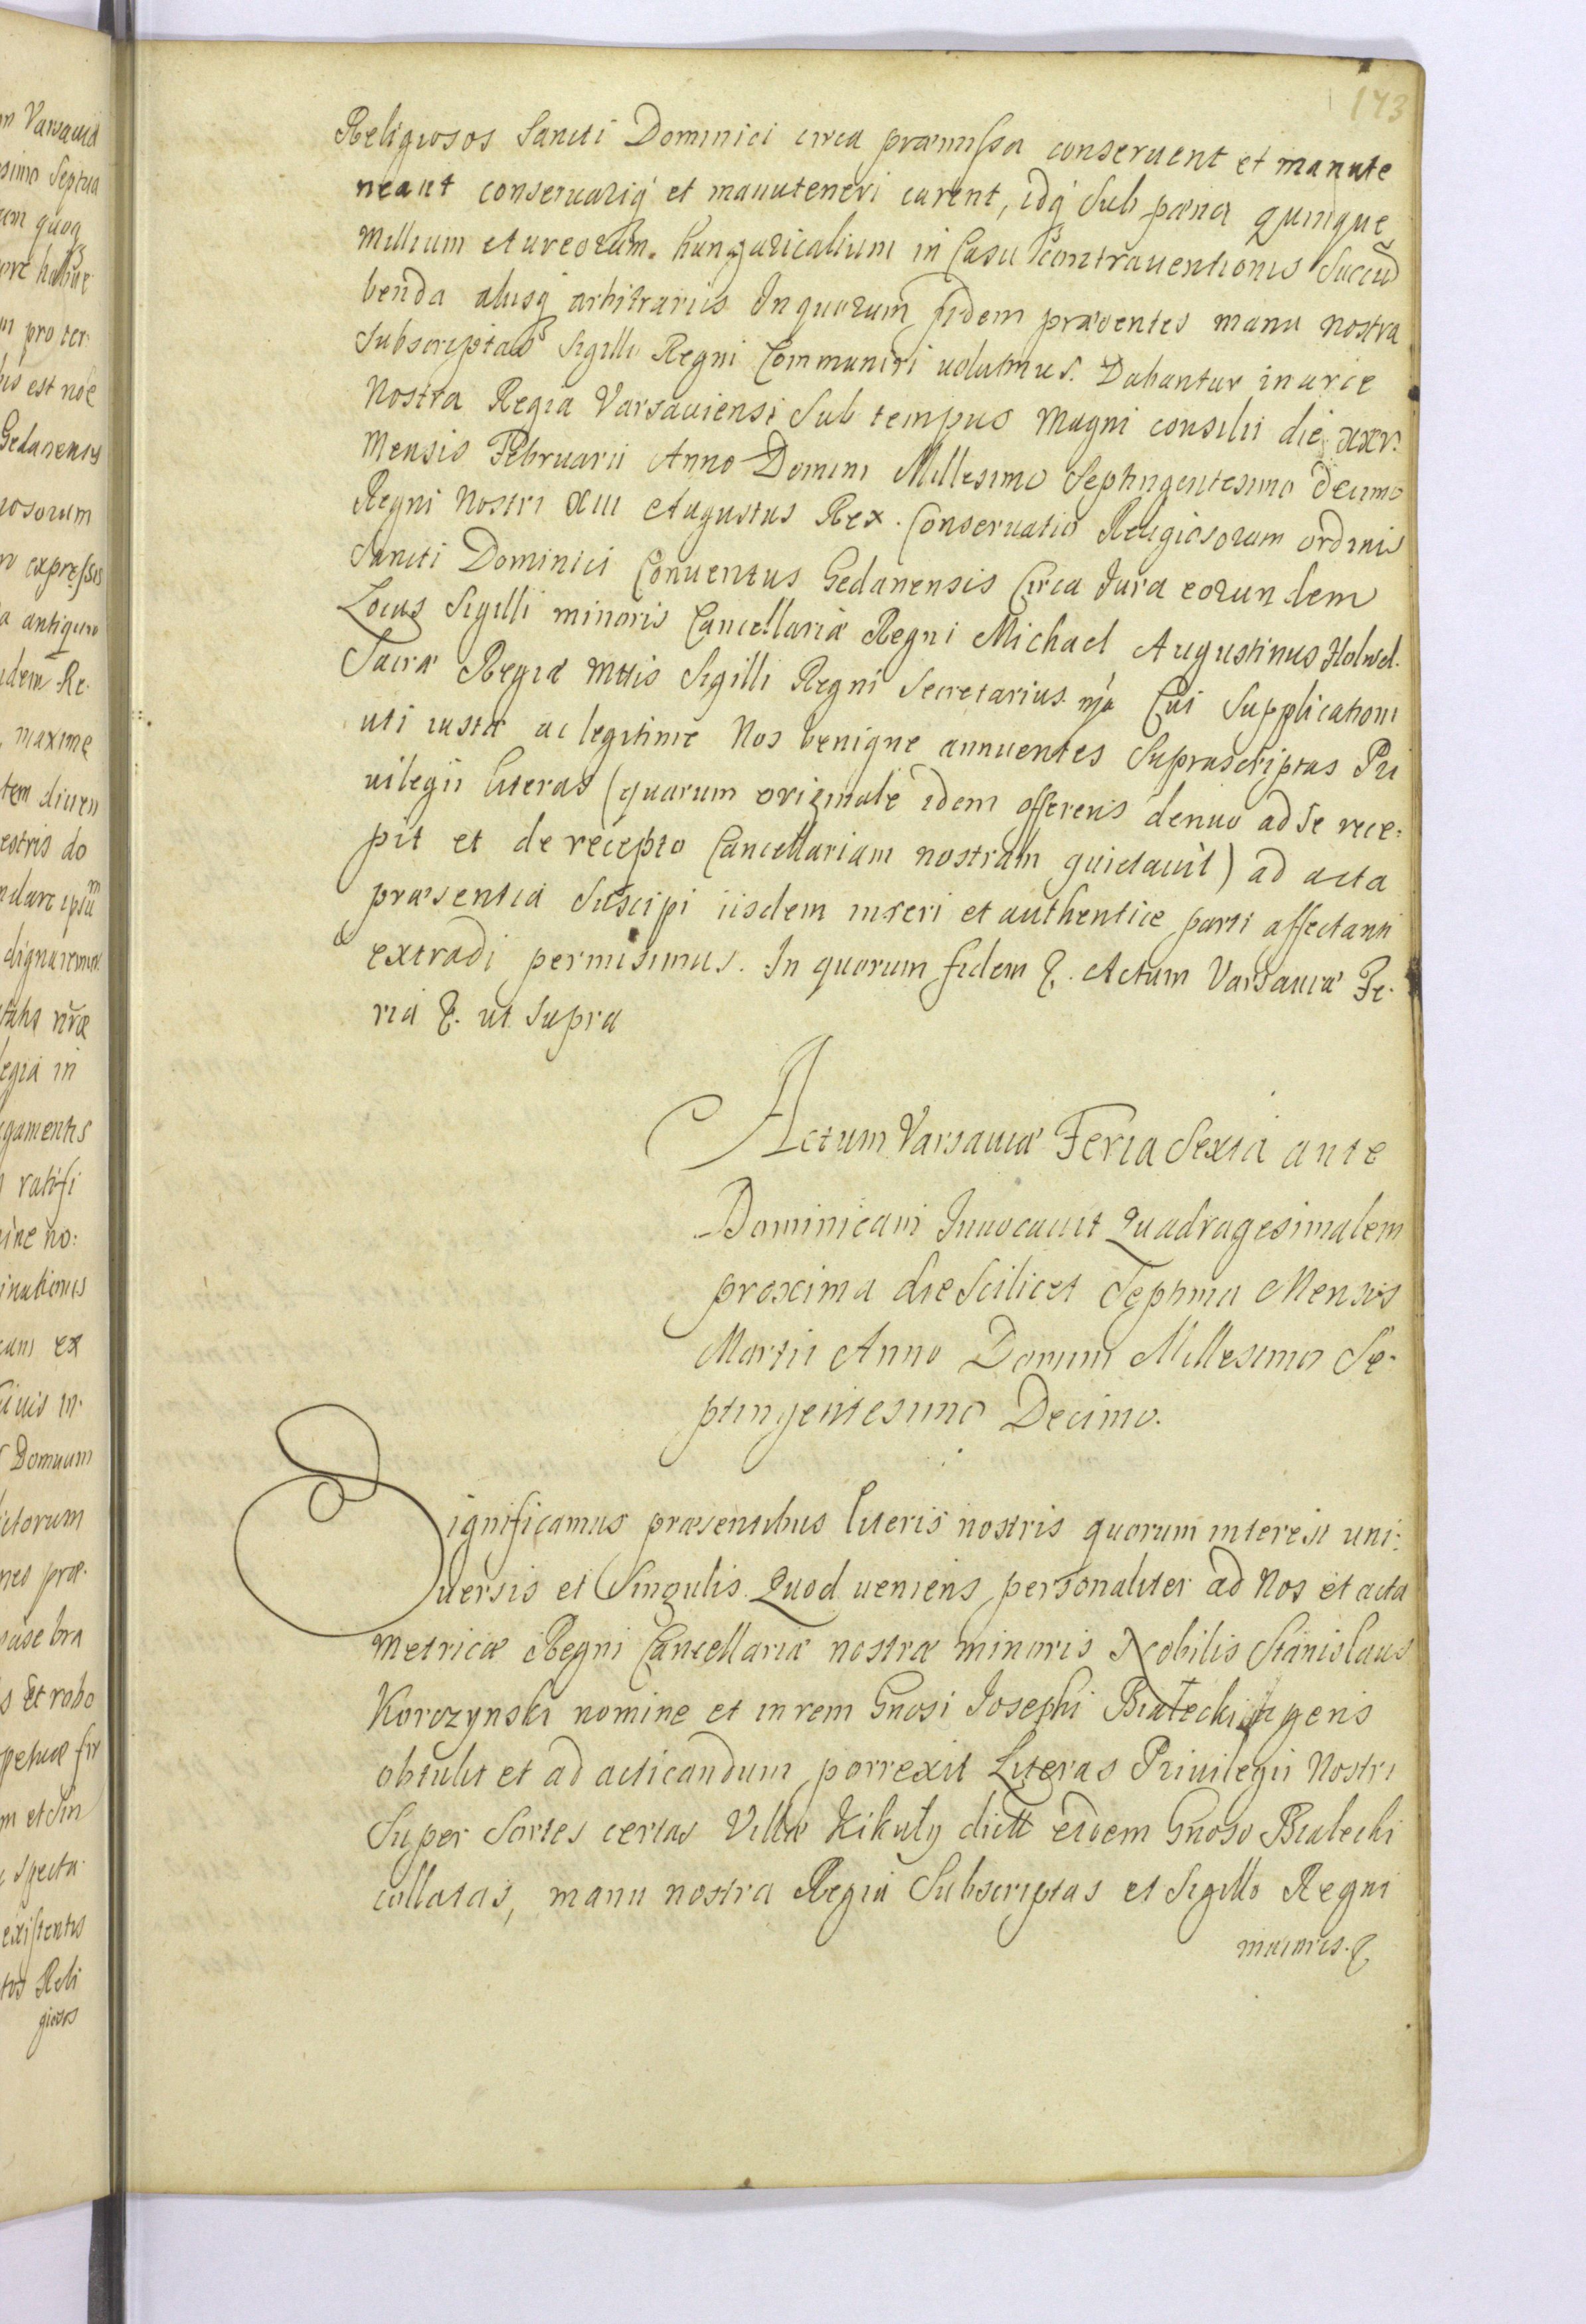 173
Religiosos Sancti Dominici circa præmissa conseruent et manute
neant conseruariq et manuteneri curent, idq Sub pœna quinque
Millium Aureorum hungaricalium in Casu Contrauentionis Succũ
benda alusq arbitrarijs In quorum fidem præsentes manu nostra
Subscriptas Sigilli Regni Communiri uoluimus. Dabantur in arce
Nostra Regia Varsauiensi Sub tempus Magni consilii die xxv.
Mensis Februarii Anno Domini Millesimo Septingentesimo decimo
Regni Nostri XIII Augustus Rex. Conseruatio Religiosorum ordinis
Sancti Dominici Conuentus Gedanensis Circa Jura eorundem
Locus Sigilli minoris Cancellariæ Regni Michael Augustinus Holwel.
Sacræ Regiæ Mttis Sigilli Regni Secretarius mp Cui Supplicationi
uti iustæ ac legitimæ Nos benigne annuentes Suprascriptas Pri
uilegii literas (quarum originale idem offerens denuo ad se rece-
pit et de recepto Cancellariam nostram quietauit) ad acta
præsentia Suscipi iisdem inseri et authentice parti affectanti
extradi permisimus. In quorum fidem &. Actum Varsauiæ Fe-
ria &. ut Supra
Actum Varsauiæ Feria Sexta ante
Dominicam Inuocauit Quadragesimalem
proxima die Scilicet Septima Mensis
Martii Anno Domini Millesimo Se-
ptingentesimo Decimo.
Significamus præsentibus literis nostris quorum interest uni:
uersis et Singulis. Quod ueniens personaliter ad Nos et acta
Metricæ Regni Cancellariæ nostræ minoris Nobilis Stanislaus
Korczynski nomine et in rem Gnosi Josephi Białecki agens
obtulit et ad acticandum porrexit Literas Priuilegii Nostri
Super Sortes certas Villæ Kikuły dictt eidem Gnoso Bialecki
collatas, manu nostra Regia Subscriptas et Sigillo Regni
maioris. &